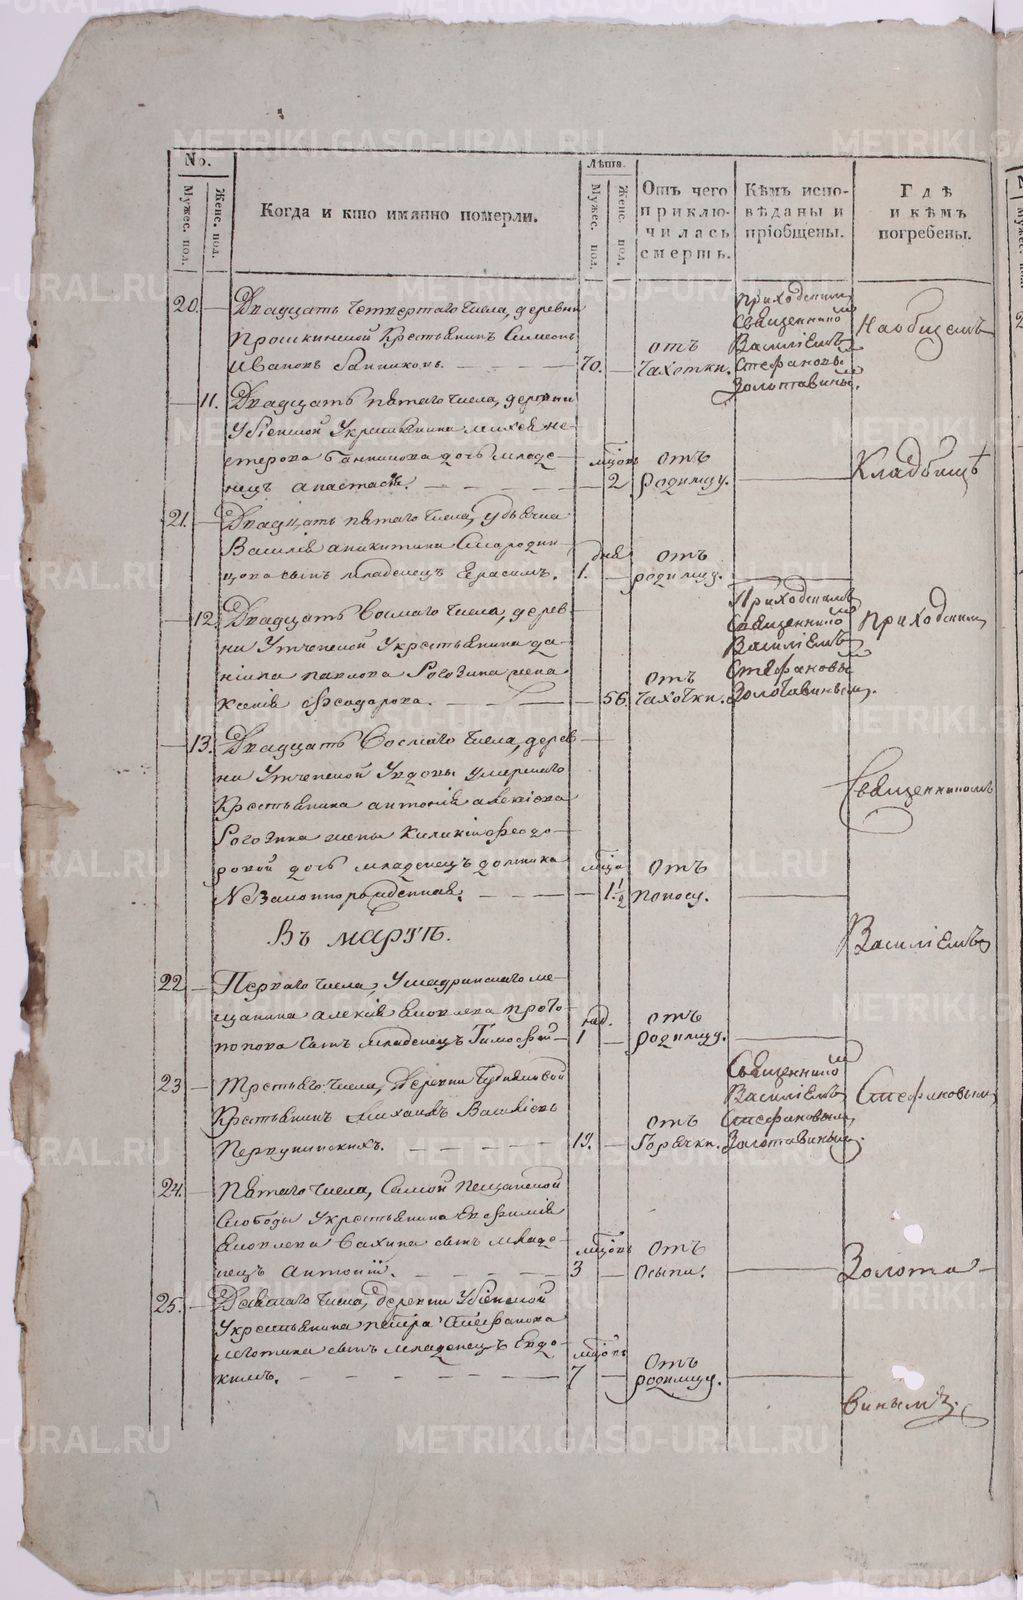 No.
Мужес. пол.
Женс. пол.
Когда и кто имянно померли.
Лѣта.
Мужес. пол.
Женс. пол.
Отъ чего
приклю-
чилась
смерть.
Кѣмъ испо-
вѣданы и
пріобщены.
Гдѣ
и кѣмъ
погребены.
20. Двадцать четвертаго числа, деревни
Крестьянинъ Симеонъ
Ивановъ
70.
отъ
чахотки.
Приходскимъ
Священникомъ
Василіемъ
Стефановы
Золотавинымъ.
На общемъ
11. Двадцать пятаго числа, деревни
Убіенной Укрестьянина Михея Не-
стерова дочь младе-
нецъ Анастасія.
мцовъ
2
отъ
родимцу.
Кладбищѣ
21. Двадцать пятаго числа, Удьячка
Василія Аникитина
сынъ младенецъ Герасимъ.
дня
1.
отъ
родимцу.
12. Двадцать восмаго числа, дерев-
ни Укрестьянина Да-
ніила Павлова Рогозина жена
Ксенія Феодорова.
56
отъ
чахотки.
Приходскимъ
Священникомъ
Василіемъ
Стефановы
Золотавинымъ.
Приходскимъ
13. Двадцать восмаго числа, дерев-
ни Увдовы умершаго
Крестьянина Антонія Алексіева
Рогозина жены Киликіи Феодо-
ровой дочь младенецъ Домника
Незаконнорожденная.
мцa
1 1/2
отъ
поносу.
Священникомъ
Въ мартѣ.
Василіемъ
22 Перваго числа, Ушадринскаго ме-
щанина Алексія Яковлева Прото-
попова сынъ младенецъ Тимофей
нед.
1
отъ
родимцу.
23 Третьяго числа, Деревни
Крестьянинъ Михаилъ
Первушинскихъ.
отъ
Горячки.
Священникомъ
Василіемъ
Стефановымъ
Золотавинымъ.
Стефановымъ
24. Пятаго числа, Самой Песчанской
Слободы Укрестьянина Евфимія
Яковлева сынъ младе-
нецъ Антоній.
мцовъ
3
отъ
Осыпи.
Золота-
25. Девятаго числа, Деревни Убіенной
Укрестьянина Петра Стефанова
сынъ младенецъ Евдо-
кимъ.
мцовъ
7
отъ
родимцу.
винымъ.
METRIKI.GASO-URAL.RU